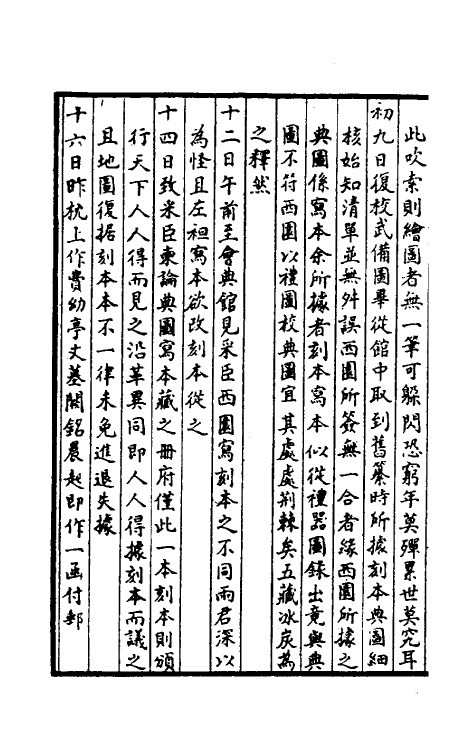 此吹索則繪圖者無一筆可躲閃恐窮年莫殫累世莫究耳
初九日復校武備圖畢從館中取到舊纂時所據刻本典圖細
核始知清單並無舛誤西園所簽無一合者緣西園所據之
典圖係寫本余所據者刻本寫本似從禮器圖錄出竟與典
圖不符西園以禮圖校典圖宜其處處荆棘矣五藏冰炭為
之釋然
十二日午前至會典館見采臣西園寫刻本之不同兩君深以
為怪且左袒寫本欲改刻本從之
十四日致米臣柬論典圖寫本藏之冊府僅此一本刻本則頒
行天下人人得而見之沿革異同即人人得據刻本而議之
且地圖復据刻本本不一律未免進退失據
十六日昨枕上作費幼亭丈墓闕銘晨起即作一函付郵